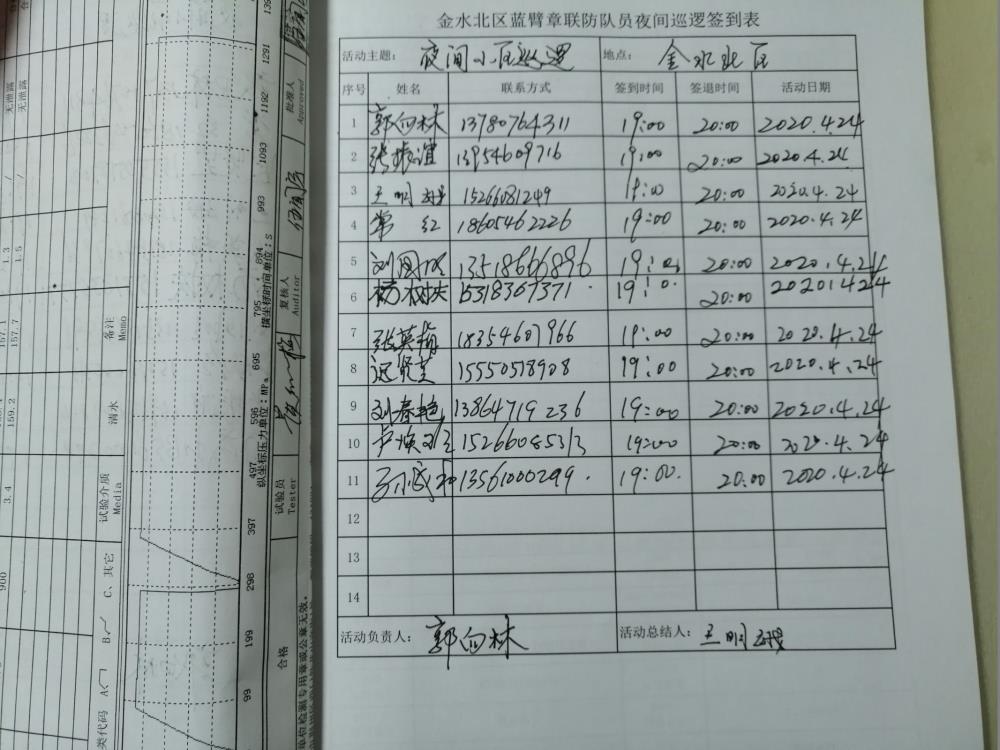 金水北区蓝臂章联防队员夜间巡逻签到表
活动主题： 夜间小区巡逻 地点： 金水北区
序号 姓名 联系方式 签到时间 签退时间 活动日期
1 郭向林 13780764311 19:00 20:00 2020.4.24
2 张振谊 13954609716 19:00 20:00 2020.4.24
3 王明 15266081249 19:00 20:00 2020.4.24
4 常红 18605462226 19:00 20:00 2020.4.24
5 刘国 13518666896 19:00 20:00 2020.4.24
6 杨树夫 15318367371 19:0 20:00 2020.4.24
7 张英梅 18354607966 19:00 20:00 2020.4.24
8 迟贤芝 15550518908 19:00 20:00 2020.4.24
9 刘春艳 13864719236 19:00 20:00 2020.4.24
10 卢焕 15266085313 19:00 20:00 2020.4.24
11 13561000299 19:00 20:00 2020.4.24
12
13
14
活动负责人： 郭向林 活动总结人： 王明
无泄露
无泄露
/
/
1.3
1.5
157.1
157.7
备注
Memo
159.2
清水
3.4
试验介质
Media
900
类代码 A B C、其它
1291
1192
1093
993
894
795
695
596
497
397
298
199
99
横坐标时间单位:S
纵坐标压力单位:MPa
批准人
Approved
复核人
Auditor
试验员
Tester
合格
单位检测专用章或公章无效。